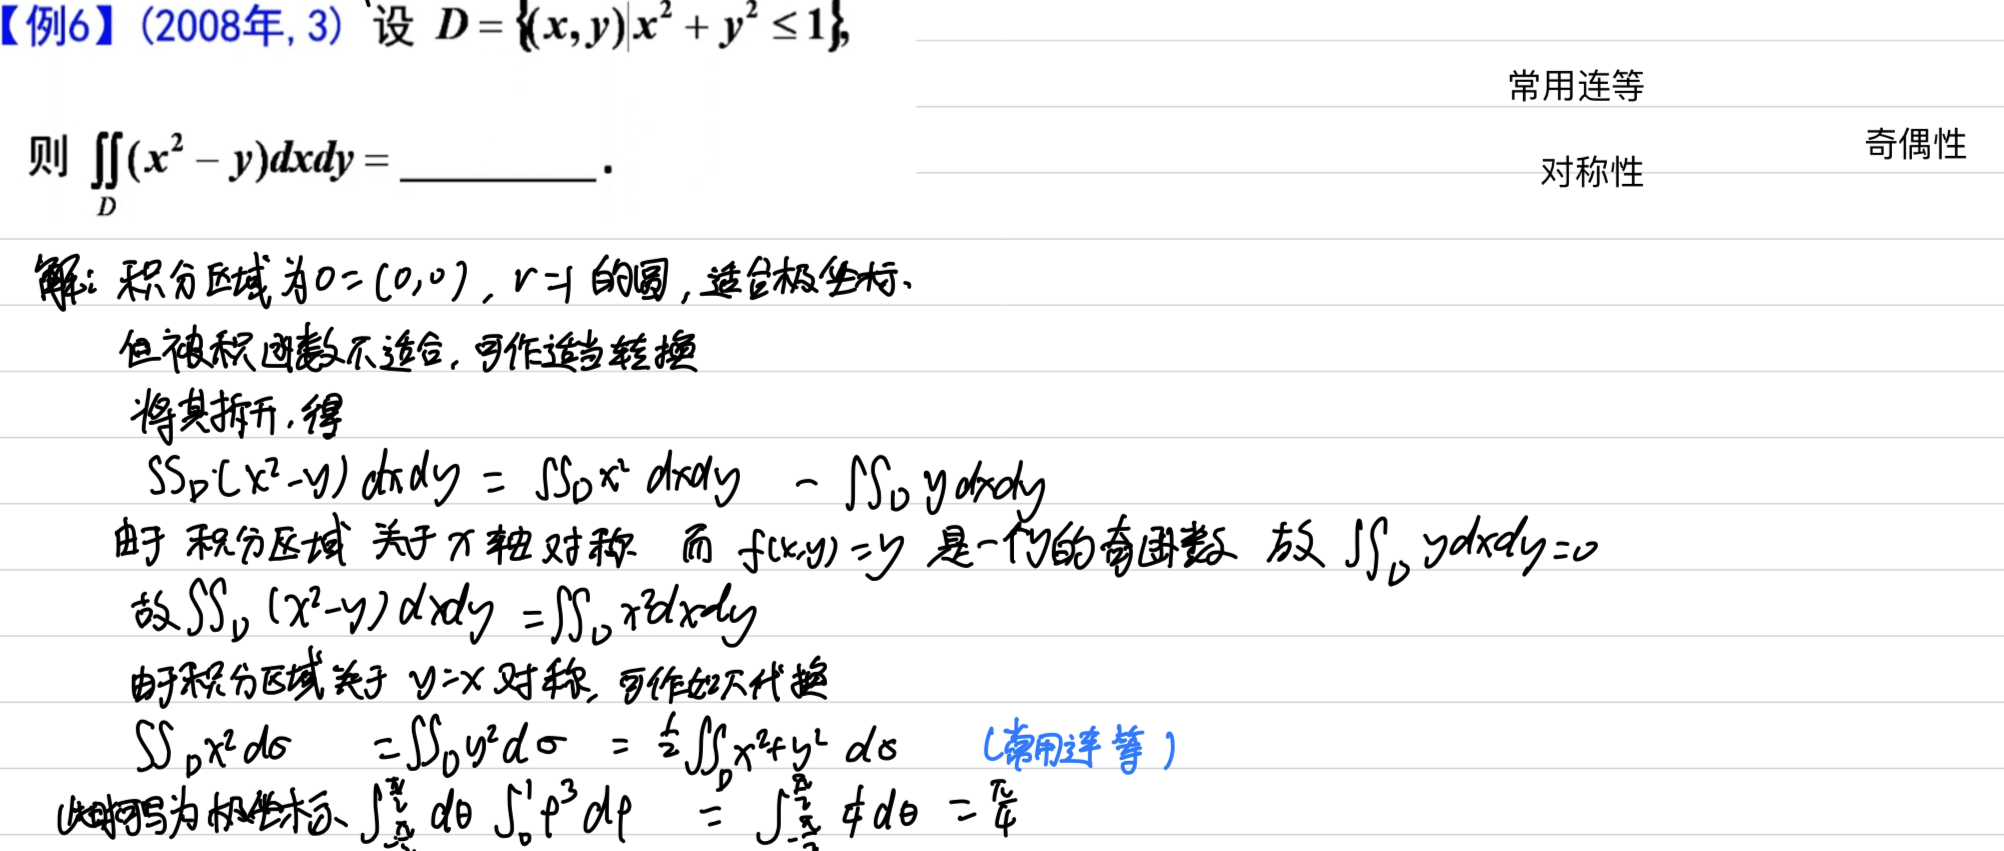 【例6】(2008年, 3) 设 D = {(x, y)|x² + y² ≤ 1},
常用连等
奇偶性
则 ∬_D (x² − y)dxdy = ________.
对称性
解: 积分区域为O=(0,0), r=1 的圆, 适合极坐标、
但被积函数不适合, 可作适当转换
将其拆开, 得
∬_D (x²-y) dxdy = ∬_D x² dxdy - ∬_D y dxdy
由于 积分区域 关于 x 轴对称 而 f(x,y)=y 是一个y的奇函数 故 ∬_D y dxdy=0
故 ∬_D (x²-y) dxdy = ∬_D x²dxdy
由于积分区域关于 y=x 对称, 可作如下代换
∬_D x² dσ = ∬_D y² dσ = ½ ∬_D x²+y² dσ (常用连等)
此时可写为极坐标、 ∫_{-π/2}^{π/2} dθ ∫_0^1 ρ³ dρ = ∫_{-π/2}^{π/2} ¼ dθ = π/4